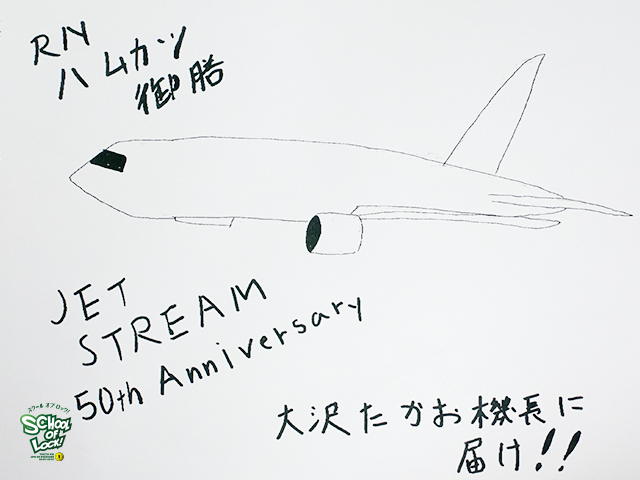 RN
ハムカツ
御膳
JET
STREAM
50th Anniversary
大沢たかお機長に
届け!!
スクール オブ ロック!
SCHOOL
OF
LOCK!